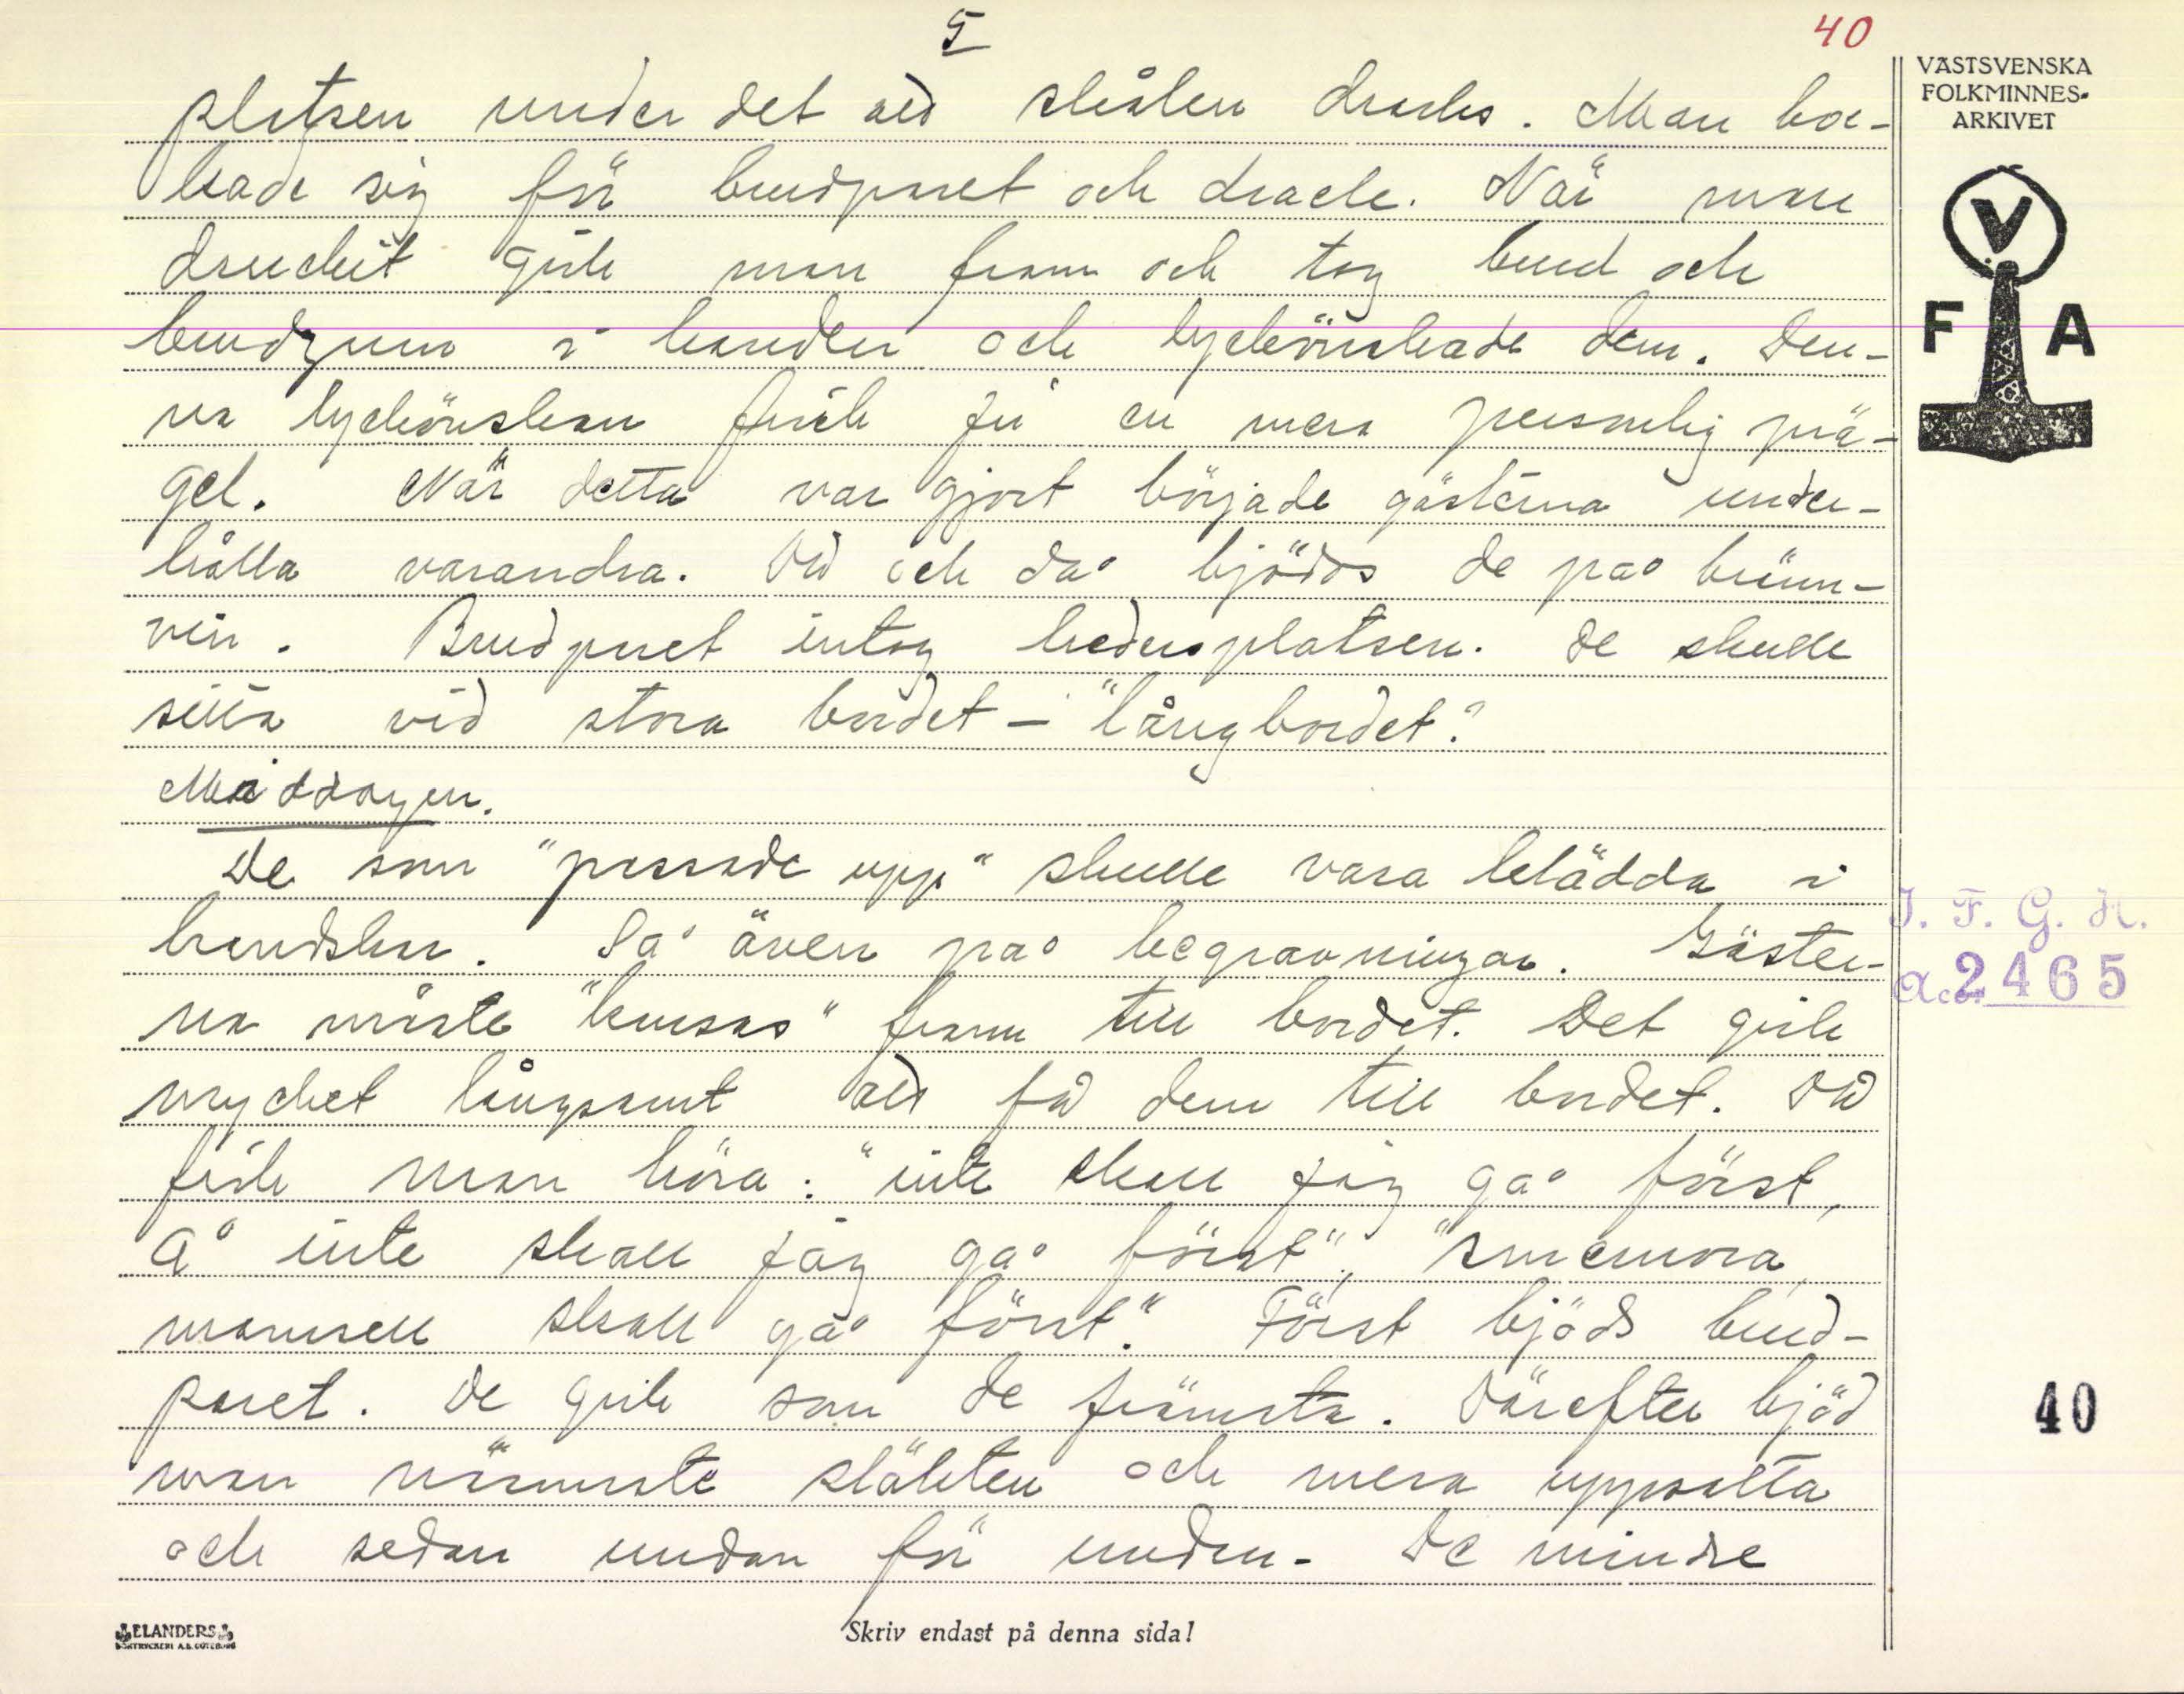 5
40
VÄSTSVENSKA
FOLKMINNES-
ARKIVET
V
F A
platsen under det att skålen dracks. Man boc-
kade sig för brudparet och drack. När man
druckit gick man fram och tog brud och
brudgum i handen och lyckönskade dem. Den-
na lyckönskan fick ju en mera personlig prä-
gel. När detta var gjort började gästerna under-
hålla varandra. Då och då bjöds de på bränn-
vin. Brudparet intog hedersplatsen. De skulle
sitta vid stora bordet – "långbordet".
Middagen.
De som "passade upp" skulle vara klädda i
handskar. Så även på begravningar. Gäster-
na måste "krusas" fram till bordet. Det gick
mycket långsamt att få dem till bordet. Då
fick man höra: "inte skall jag gå först,
å inte skall jag gå först", "smemora,
mamsell skall gå först." Först bjöds brud-
paret. De gick som de främsta. Därefter bjöd
man närmaste släkten och mera uppsatta
och sedan undan för undan. De mindre
J. F. G. H.
Acc. 2465
40
ELANDERS
BOKTRYCKERI A.B. GÖTEBORG
Skriv endast på denna sida!